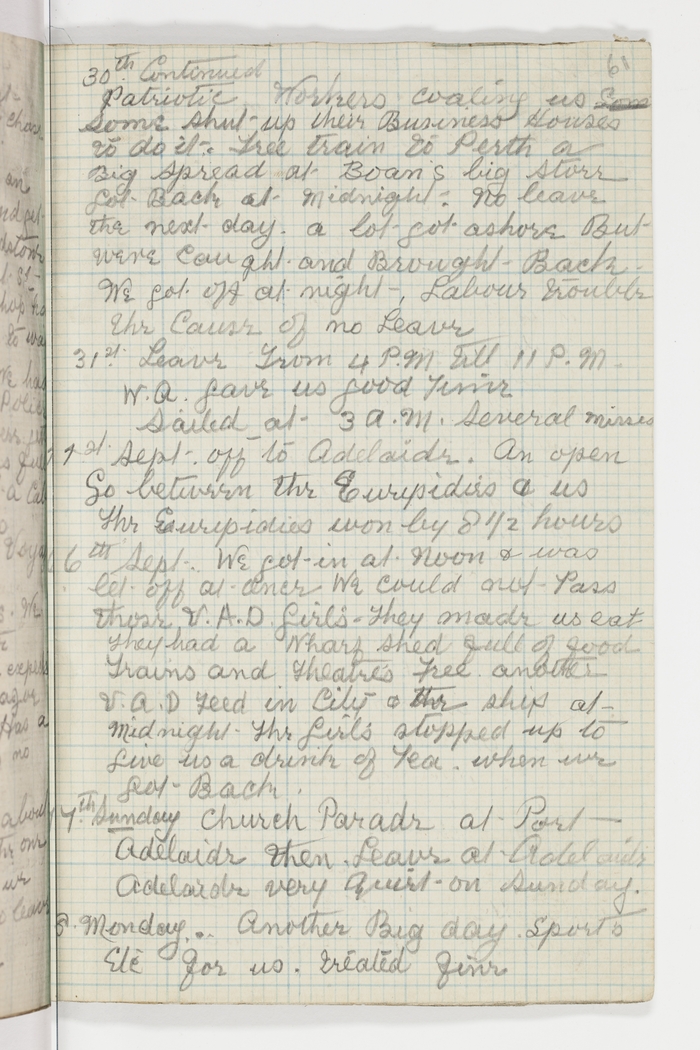 61
30th Continued
Patriotic Workers coaling us
some shut-up their Business Houses
to do it. Free train to Perth a
Big spread at Boan's big store
Got Back at Midnight. No leave
the next day. a lot got ashore But
were Caught and Brought Back.
We got off at night, Labour trouble
the Cause of no Leave
31st Leave From 4 P.M till 11 P.M.
W.A. gave us good Time
Sailed at 3 A.M. Several misses
1st Sept. off to Adelaide. An open
Go between the Euripidies & us
The Euripidies won by 8 1/2 hours
6th Sept. We got in at Noon & was
let off at once We could not Pass
those V.A.D Girls. They made us eat
They had a Wharf shed full of food
Trains and Theatres Free another
V.A.D Feed in City & the ship at
Midnight. The Girls stopped up to
give us a drink of Tea. when we
got Back.
7th Sunday Church Parade at Port
Adelaide then Leave at Adelaide
Adelaide very Quiet on Sunday.
8. Monday.. Another Big day. Sports
Etc for us. treated fine